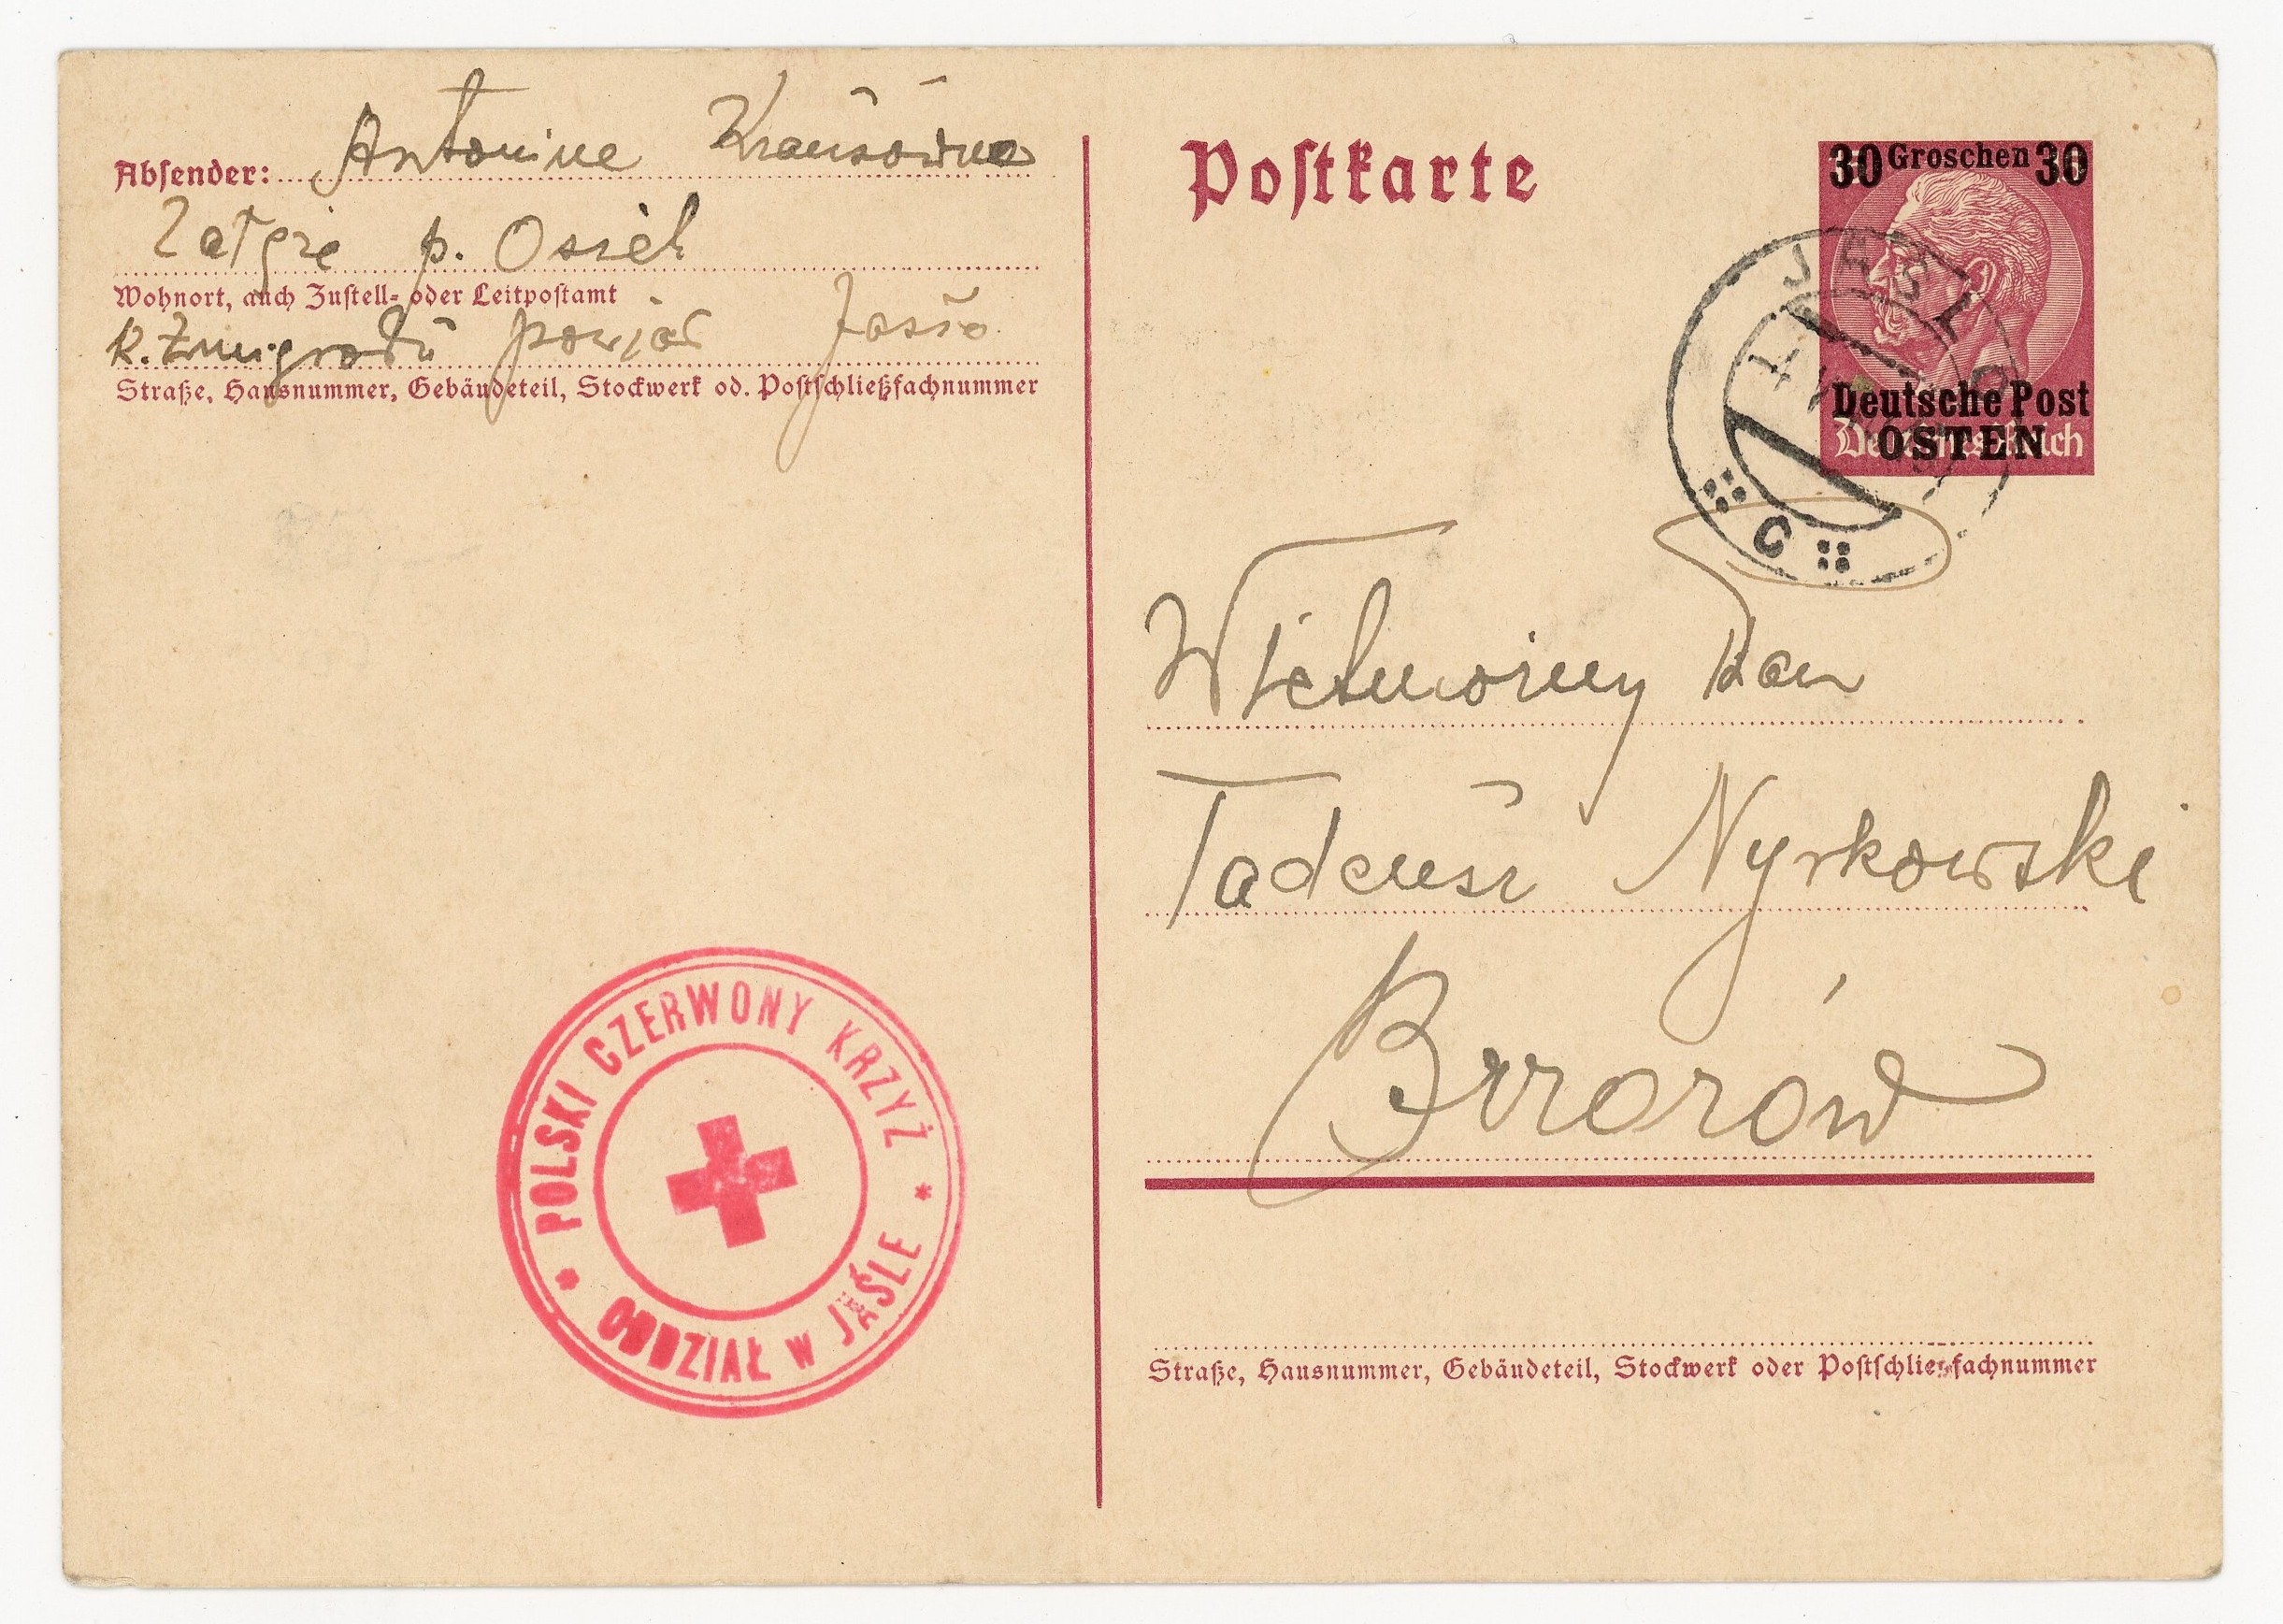 Absender: Antonina Krausówna
Załęże p. Osiek
Wohnort, auch Zustell- oder Leitpostamt
k. Żmigrodu powiat Jasło
Straße, Hausnummer, Gebäudeteil, Stockwerk od. Postschließfachnummer
Postkarte
30 Groschen 30
Deutsche Post
OSTEN
Deutsches Reich
JASŁO
C
Wielmożny Pan
Tadeusz Nyrkowski
Brzozów
Straße, Hausnummer, Gebäudeteil, Stockwerk oder Postschließfachnummer
* POLSKI CZERWONY KRZYŻ *
ODDZIAŁ w JAŚLE